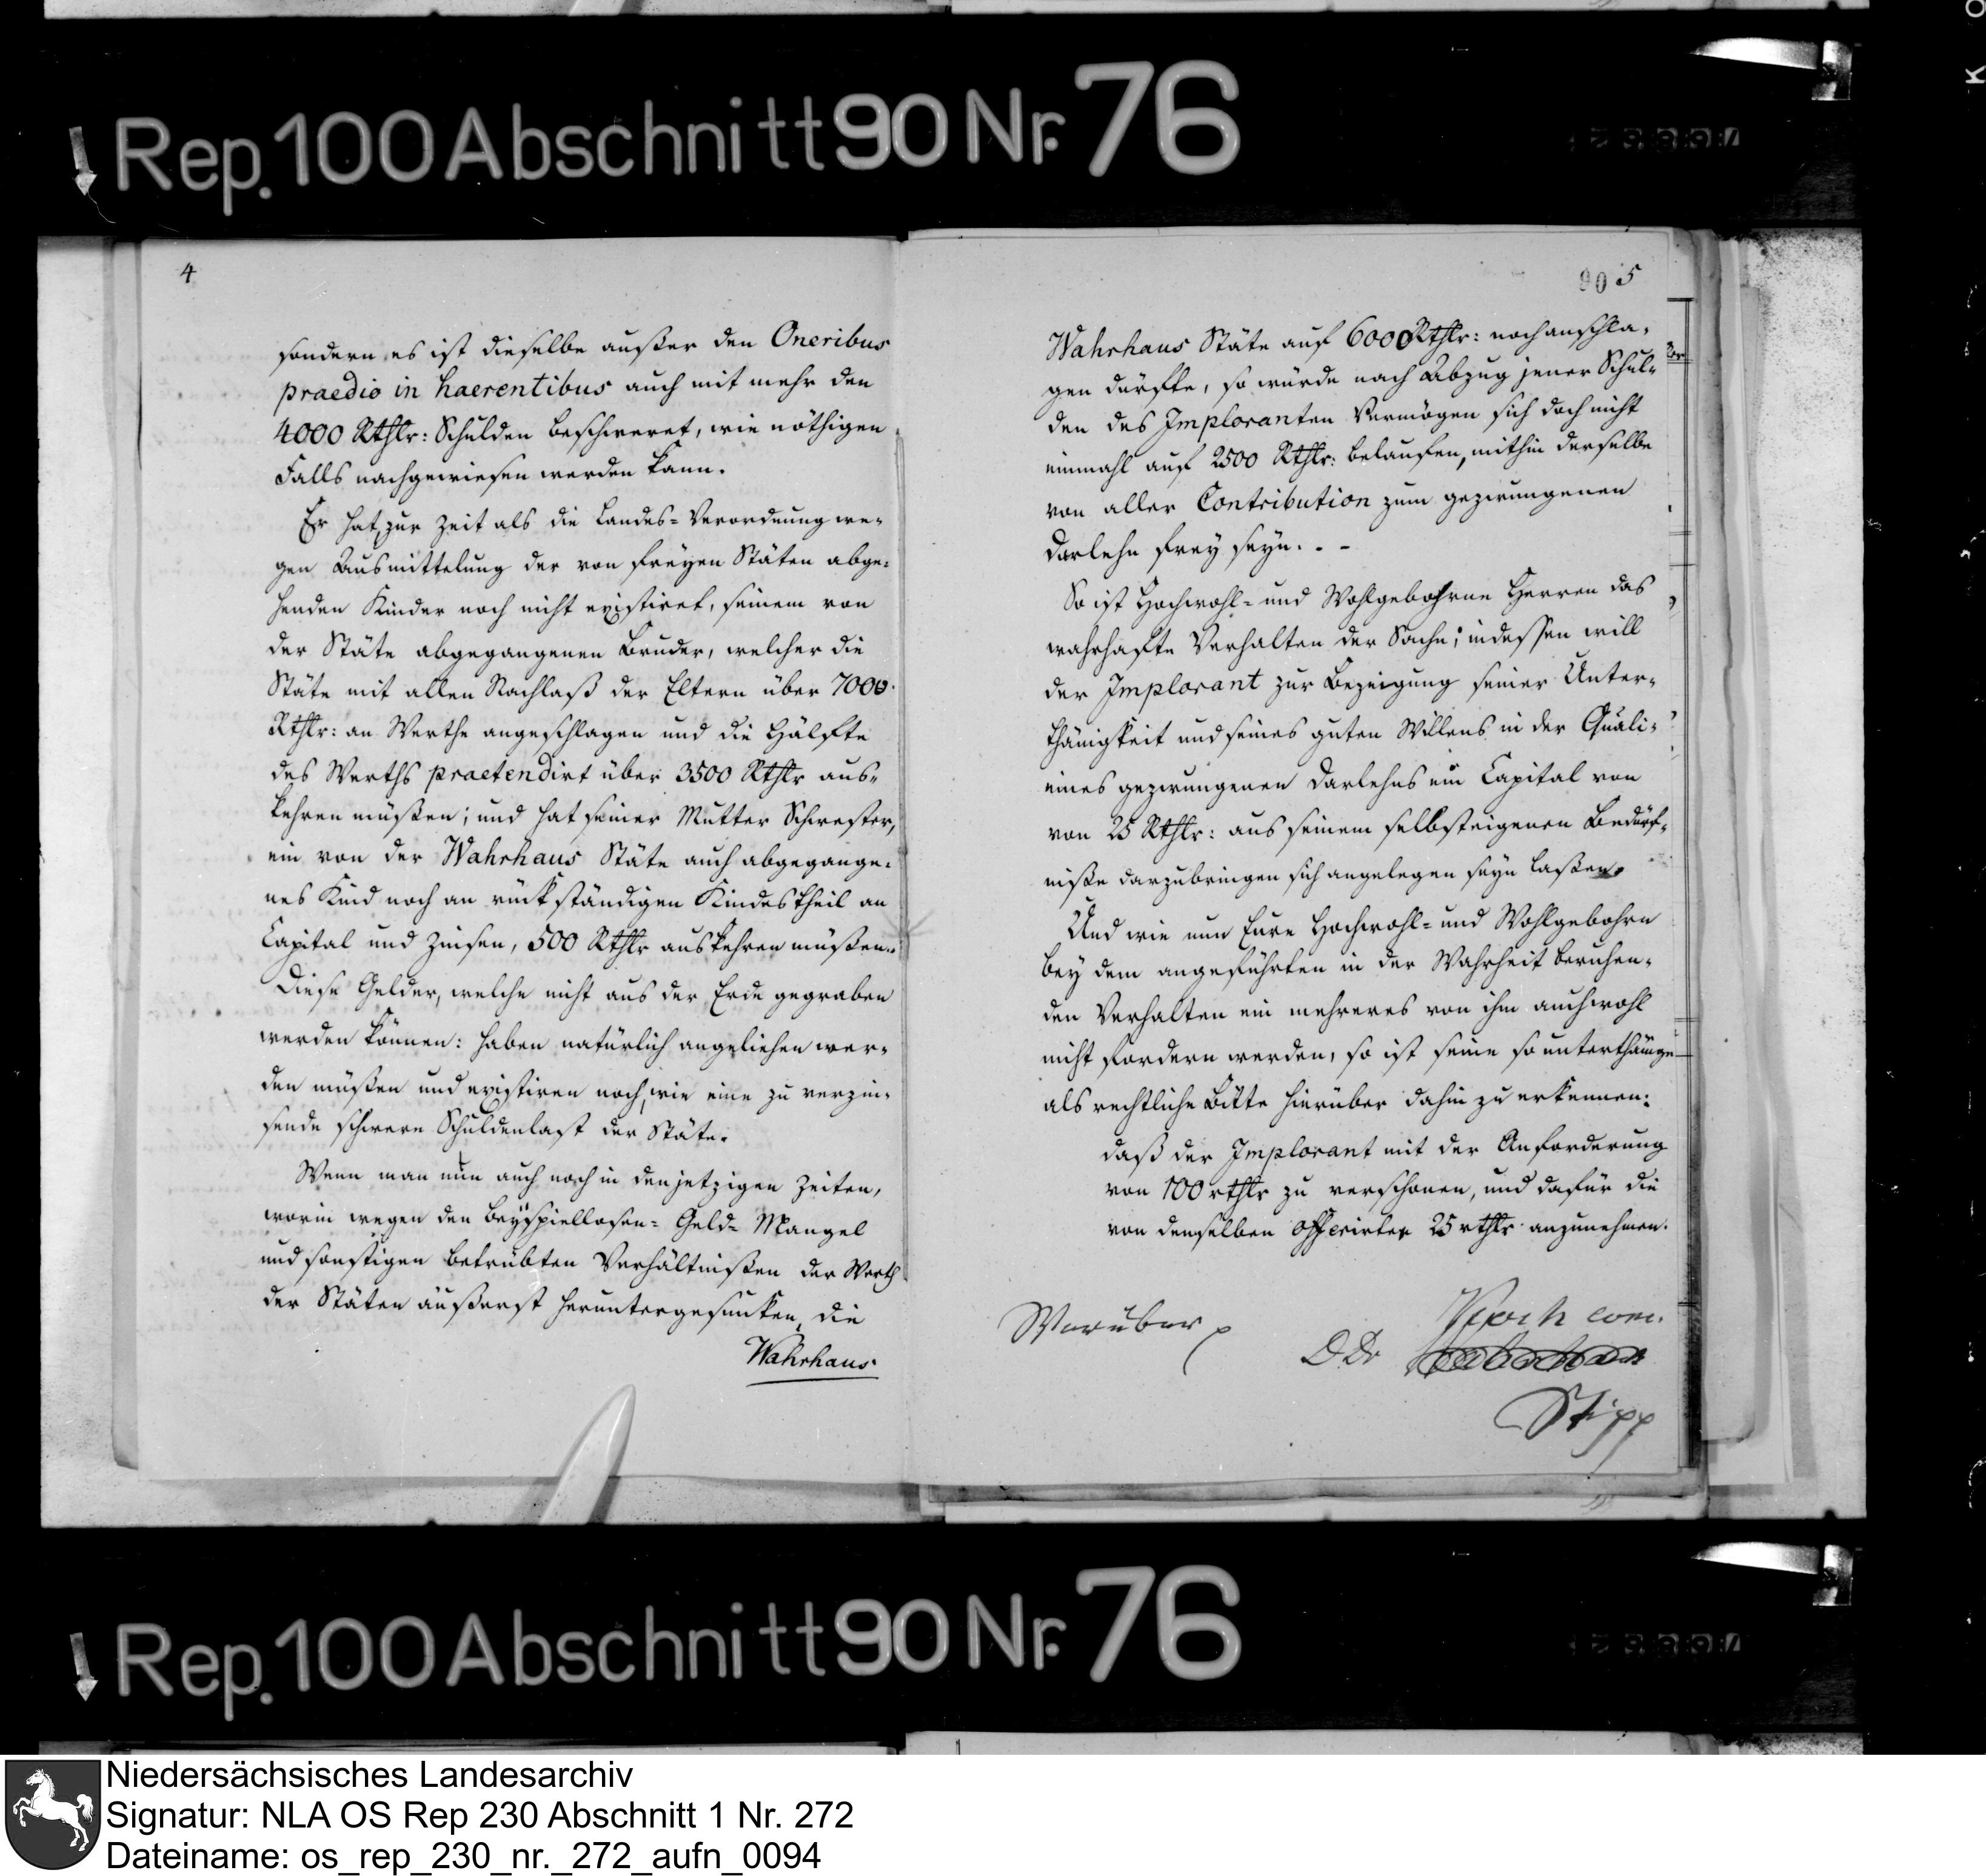 Rep. 100 Abschnitt 90 Nr. 76
4
sondern es ist dieselbe außer den Oneribus
praedio in haerentibus auch mit mehr den
4000 Rthlr: Schulden beschweret, wie nöthigen
Falls nachgewiesen werden kann.
Er hat zur Zeit als die Landes-Verordnung we-
gen Ausmittelung der von freyen Stäten abge-
henden Kinder noch nicht existiret, seinem von
der Stäte abgegangenen Bruder, welcher die
Stäte mit allen Nachlaß der Eltern über 7000
Rthlr: an Werthe angeschlagen und die Hälfte
des Werths praetendirt über 3500 Rthlr aus-
kehren müßen; und hat seiner Mutter Schwester,
ein von der Wahrhaus Stäte auch abgegange-
nes Kind noch an rückständigen Kindestheil an
Capital und Zinsen, 500 Rthlr auskehren müßen.
Diese Gelder, welche nicht aus der Erde gegraben
werden können: haben natürlich angeliehen wer-
den müßen und existiren noch, wie eine zu verzin-
sende schwere Schuldenlast der Stäte.
Wenn man nun auch noch in den jetzigen Zeiten,
worin wegen den beyspiellosen- Geld- Mangel
und sonstigen betrübten Verhältnißen der Werth
der Stäten äußerst heruntergesunken, die
Wahrhaus
90 5
Wahrhaus Stäte auf 6000 Rthlr: noch anschla-
gen dürfte, so würde nach Abzug jener Schul-
den des Imploranten Vermögen sich doch nicht
einmahl auf 2500 Rthlr: belaufen, mithin derselbe
von aller Contribution zum gezwungenen
Darlehn frey seyn. . -
So ist Hochwohl- und Wohlgebohrne Herren das
wahrhafte Verhalten der Sache; indessen will
der Implorant zur Bezeigung seiner Unter-
thänigkeit und seines guten Willens in der Quali-
eines gezwungenen Darlehns ein Capital von
von 25 Rthlr: aus seinem selbsteigenen Bedürf-
niße darzubringen sich angelegen seyn laßen.
Und wie nun Eure Hochwohl- und Wohlgebohrn
bey dem angeführten in der Wahrheit beruhen-
den Verhalten ein mehreres von ihm auch wohl
nicht fordern werden, so ist seine so unterthänige
als rechtliche Bitte hierüber dahin zu erkennen:
daß der Implorant mit der Anforderung
von 100 rthlr zu verschonen, und dafür die
von denselben offerirten 25 rthlr anzunehmen.
Worüber
D Dr
Stipp
Rep. 100 Abschnitt 90 Nr. 76
Niedersächsisches Landesarchiv
Signatur: NLA OS Rep 230 Abschnitt 1 Nr. 272
Dateiname: os_rep_230_nr._272_aufn_0094